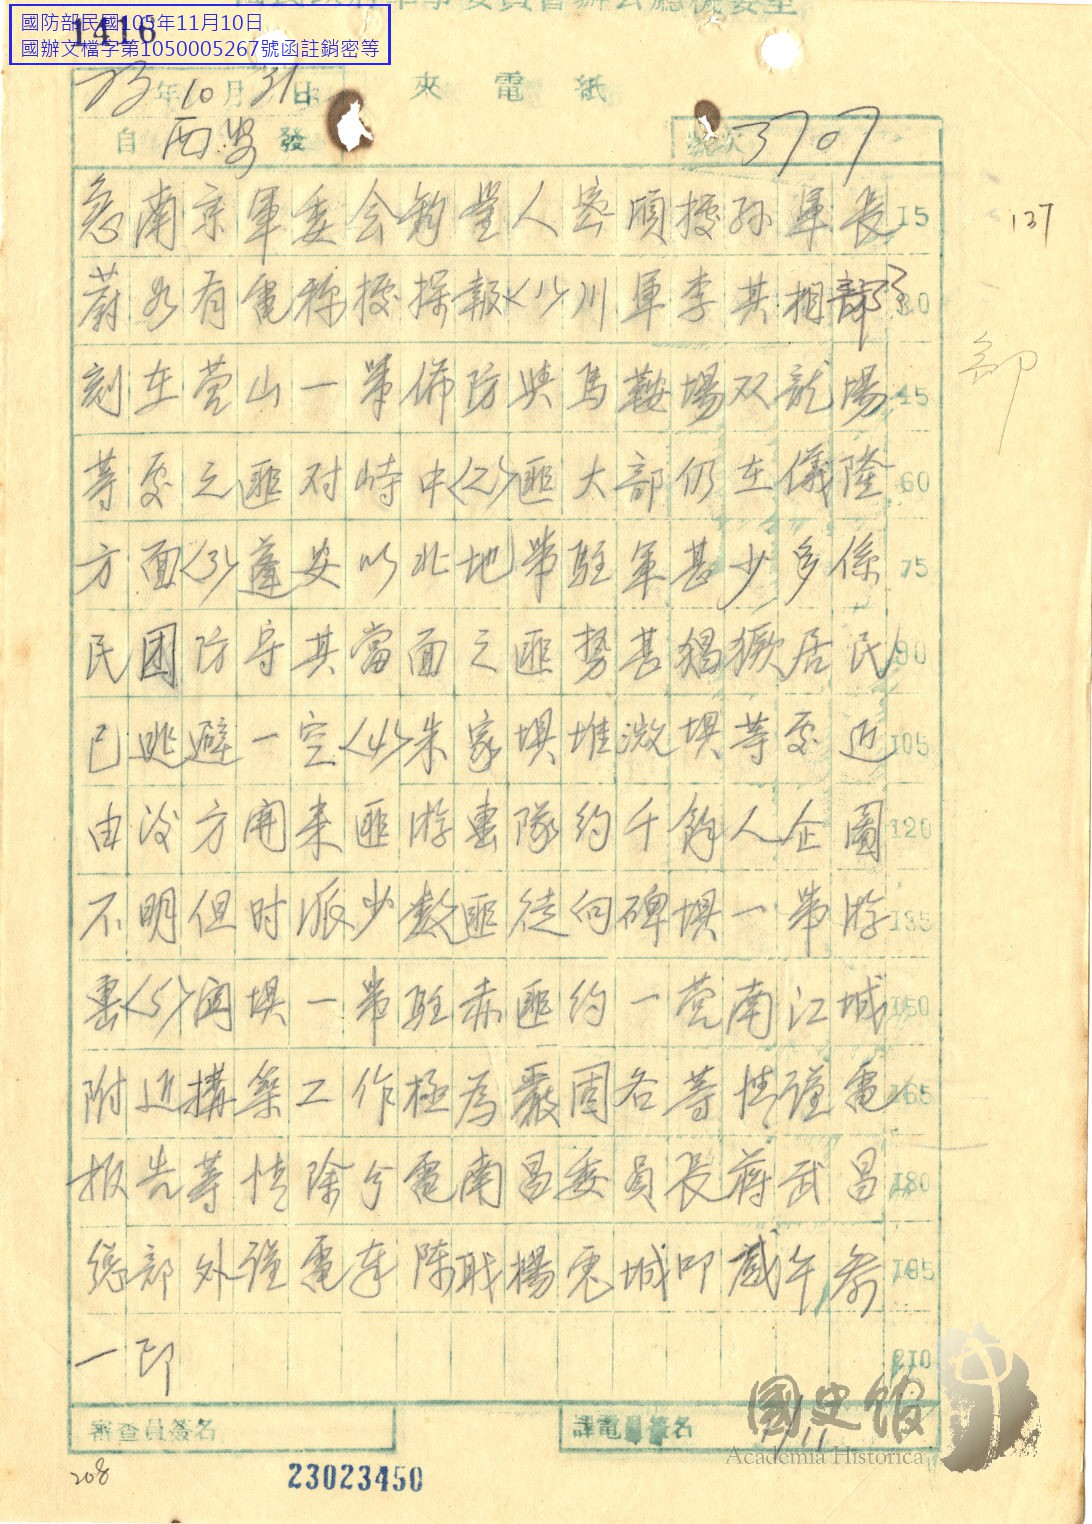 國防部民國105年11月10日
國辦文檔字第1050005267號函註銷密等
1416
來電紙
23年10月31日
自西安發
3707
137
急南京軍委会鈞堂人密頃據孙軍長 15
蔚如有電称據探報<1>川軍李其相部 30
刻在营山一帶佈防與馬鞍場双龍場 45
等處之匪对峙中<2>匪大部仍在儀隆 60
方面<3>蓬安以北地帶駐軍甚少多係 75
民团防守其當面之匪势甚猖獗居民 90
已逃避一空<4>朱家垻堆溦垻等處近 105
由後方開来匪游击隊约千餘人企圖 120
不明但时派少数匪徒向碑垻一帶游 135
击<5>闵垻一帶駐赤匪约一营南江城 150
附近構築工作極為嚴固各等情谨電 165
报告等情除分電南昌委員長蔣武昌 180
總部外謹電奉陳職楊虎城叩蔵午参 195
一印 210
審查員簽名
譯電員簽名
208
23023450
國史館
Academia Historica